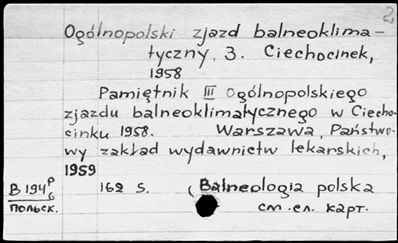 2
Ogólnopolski zjazd balneoklima-
tyczny, 3. Ciechocinek,
1958
Pamiętnik III Ogólnopolskiego
zjazdu balneoklimatycznego w Ciecho-
cinku 1958. Warszawa, Państwo-
wy zakład wydawnictw lekarskich,
1959
B 194 P/6 162 S. (Balneologia polska
польск. см. сл. карт.